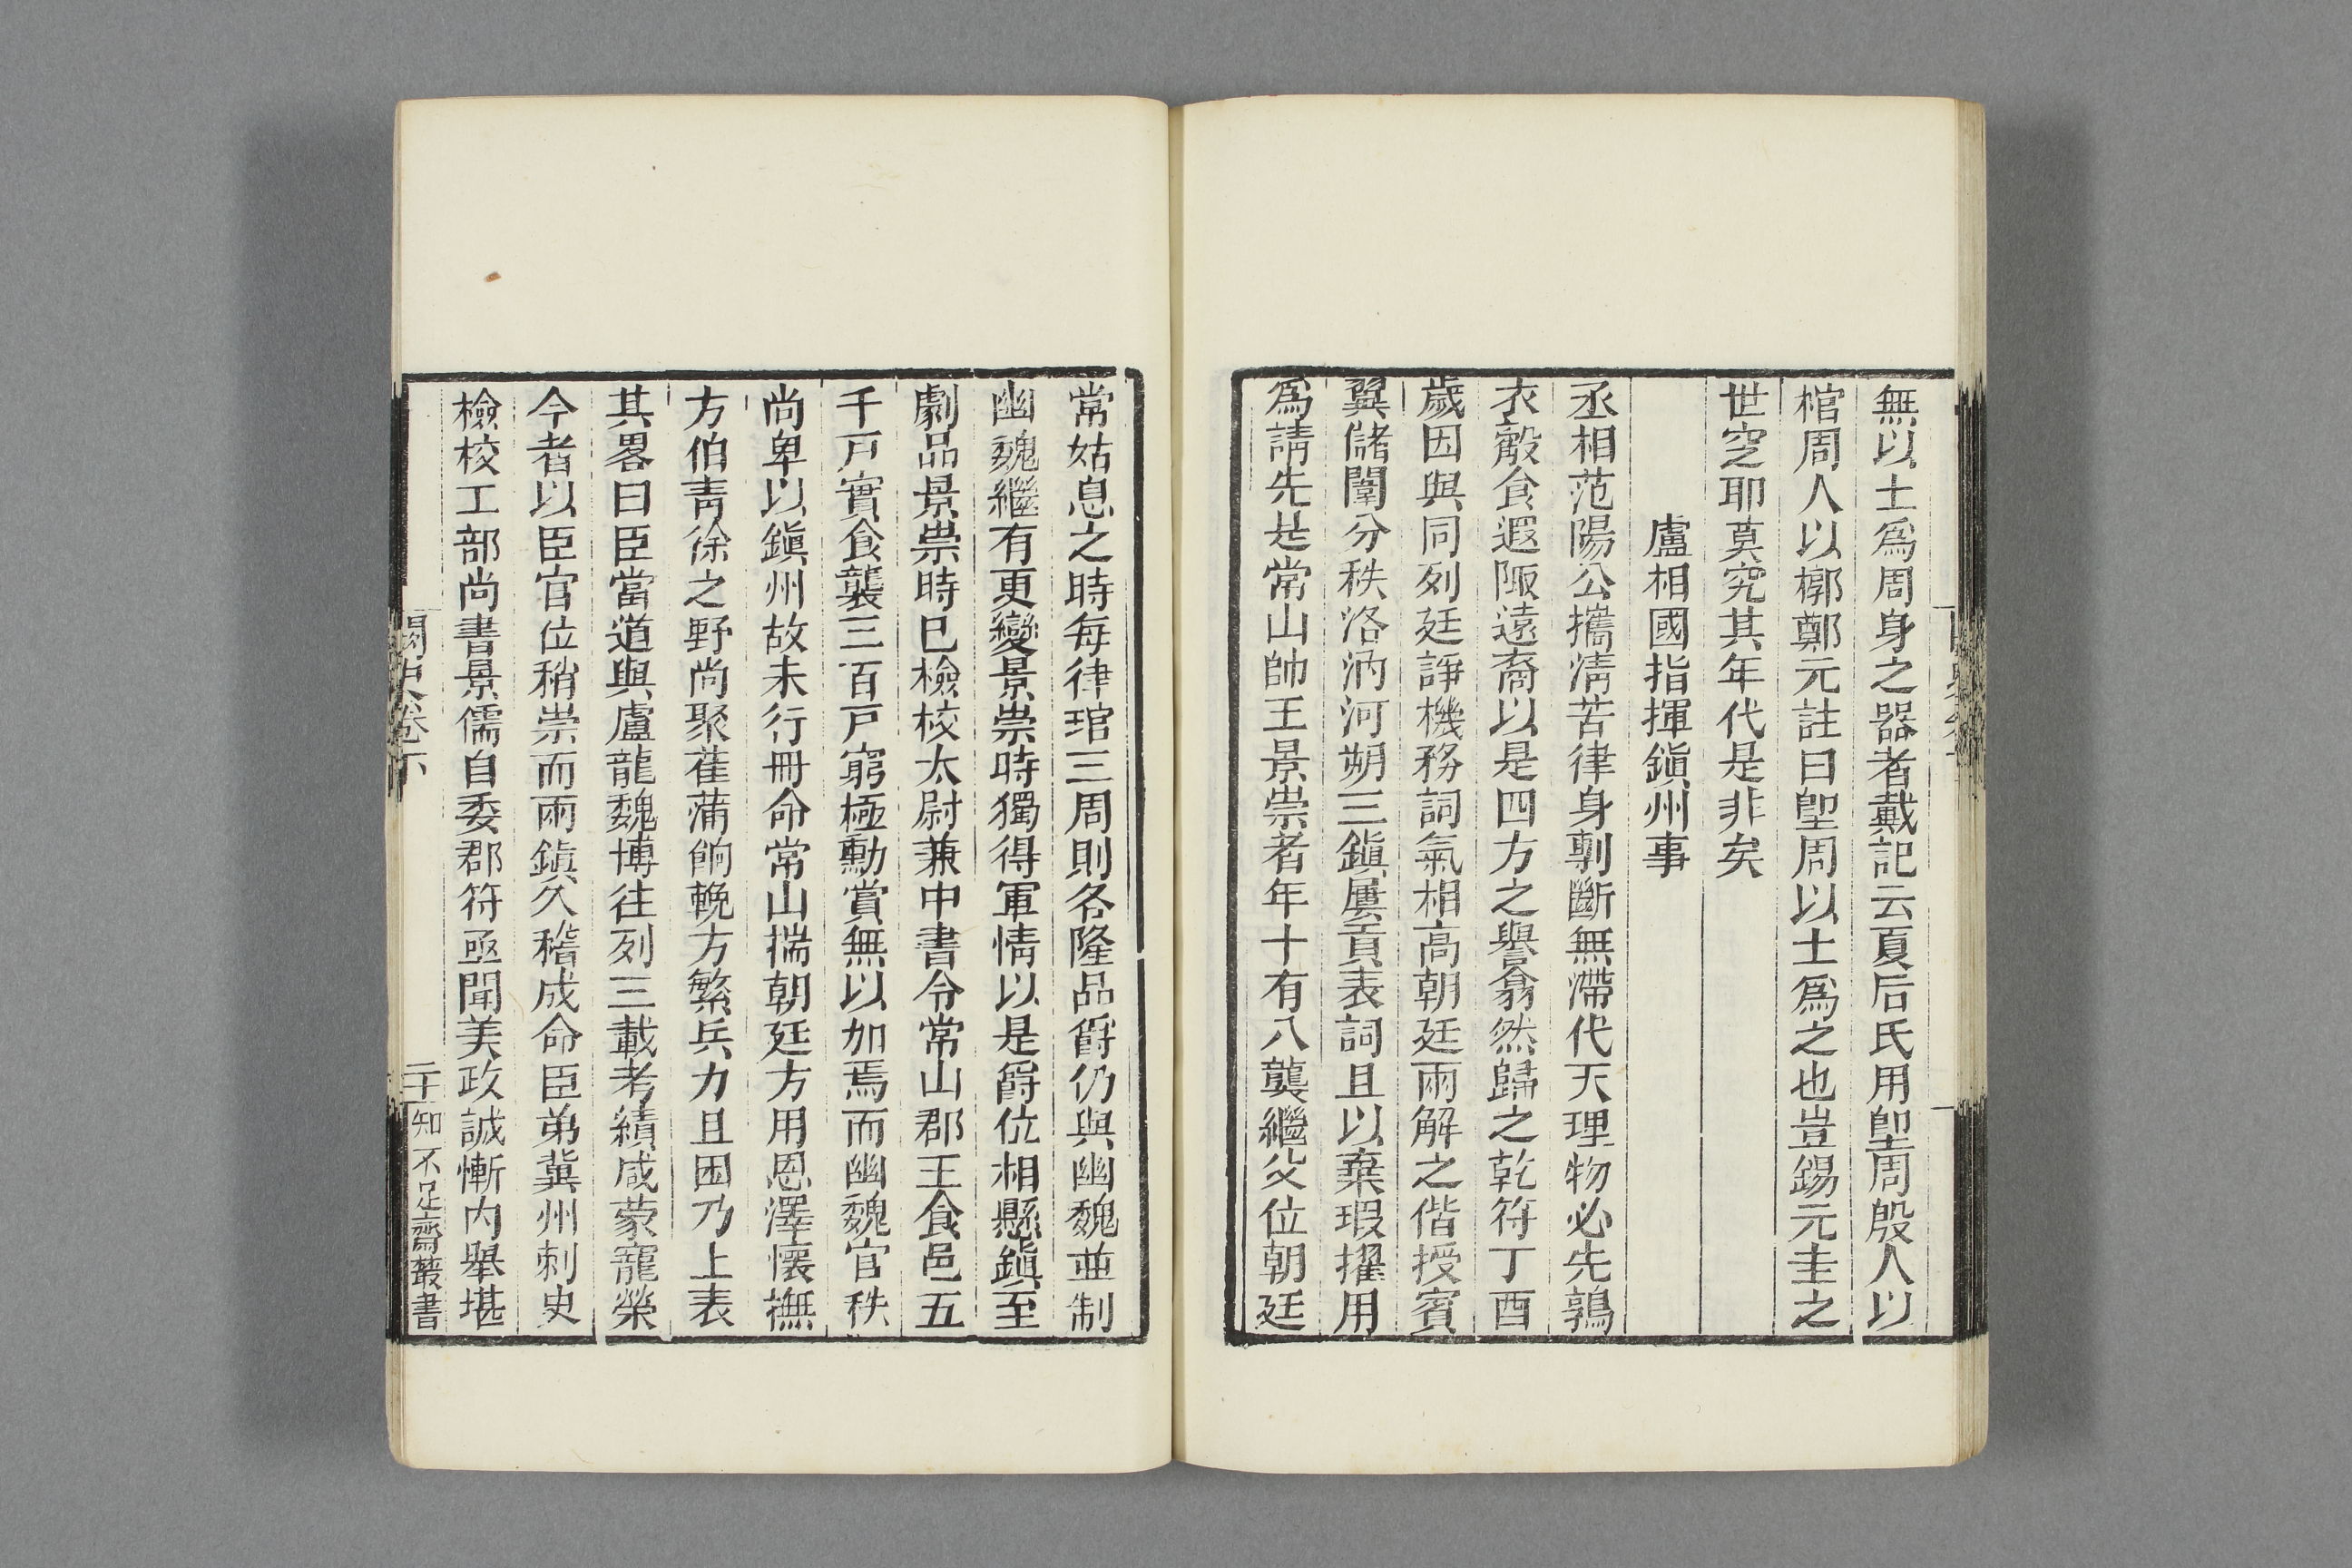 無以土爲周身之器者戴記云夏后氏用堲周殷人以
棺周人以槨鄭元註曰堲周以土爲之也豈錫元圭之
世窆耶莫究其年代是非矣
盧相國指揮鎭州事
丞相范陽公攜清苦律身剸斷無滯代天理物必先鶉
衣鷇食遐陬遠裔以是四方之譽翕然歸之乾符丁酉
歲因與同列廷諍機務詞氣相高朝廷兩解之偕授賓
翼儲闈分秩洛汭河朔三鎭屢貢表詞且以棄瑕擢用
爲請先是常山帥王景崇者年十有八襲繼父位朝廷
常姑息之時每律琯三周則各隆品爵仍與幽魏並制
幽魏繼有更變景崇時獨得軍情以是爵位相懸鎭至
劇品景祟時已檢校太尉兼中書令常山郡王食邑五
千戸實食襲三百戸窮極勳賞無以加焉而幽魏官秩
尚卑以鎭州故未行冊命常山揣朝廷方用恩澤懷撫
方伯靑徐之野尚聚萑蒲餉輓方繁兵力且困乃上表
其畧曰臣當道與盧龍魏博往列三載考績咸蒙寵榮
今者以臣官位稍崇而兩鎭久稽成命臣弟冀州刺史
檢校工部尚書景儒自委郡符亟聞美政誠慚內舉堪
闕史卷下
二十
知不足齋叢書